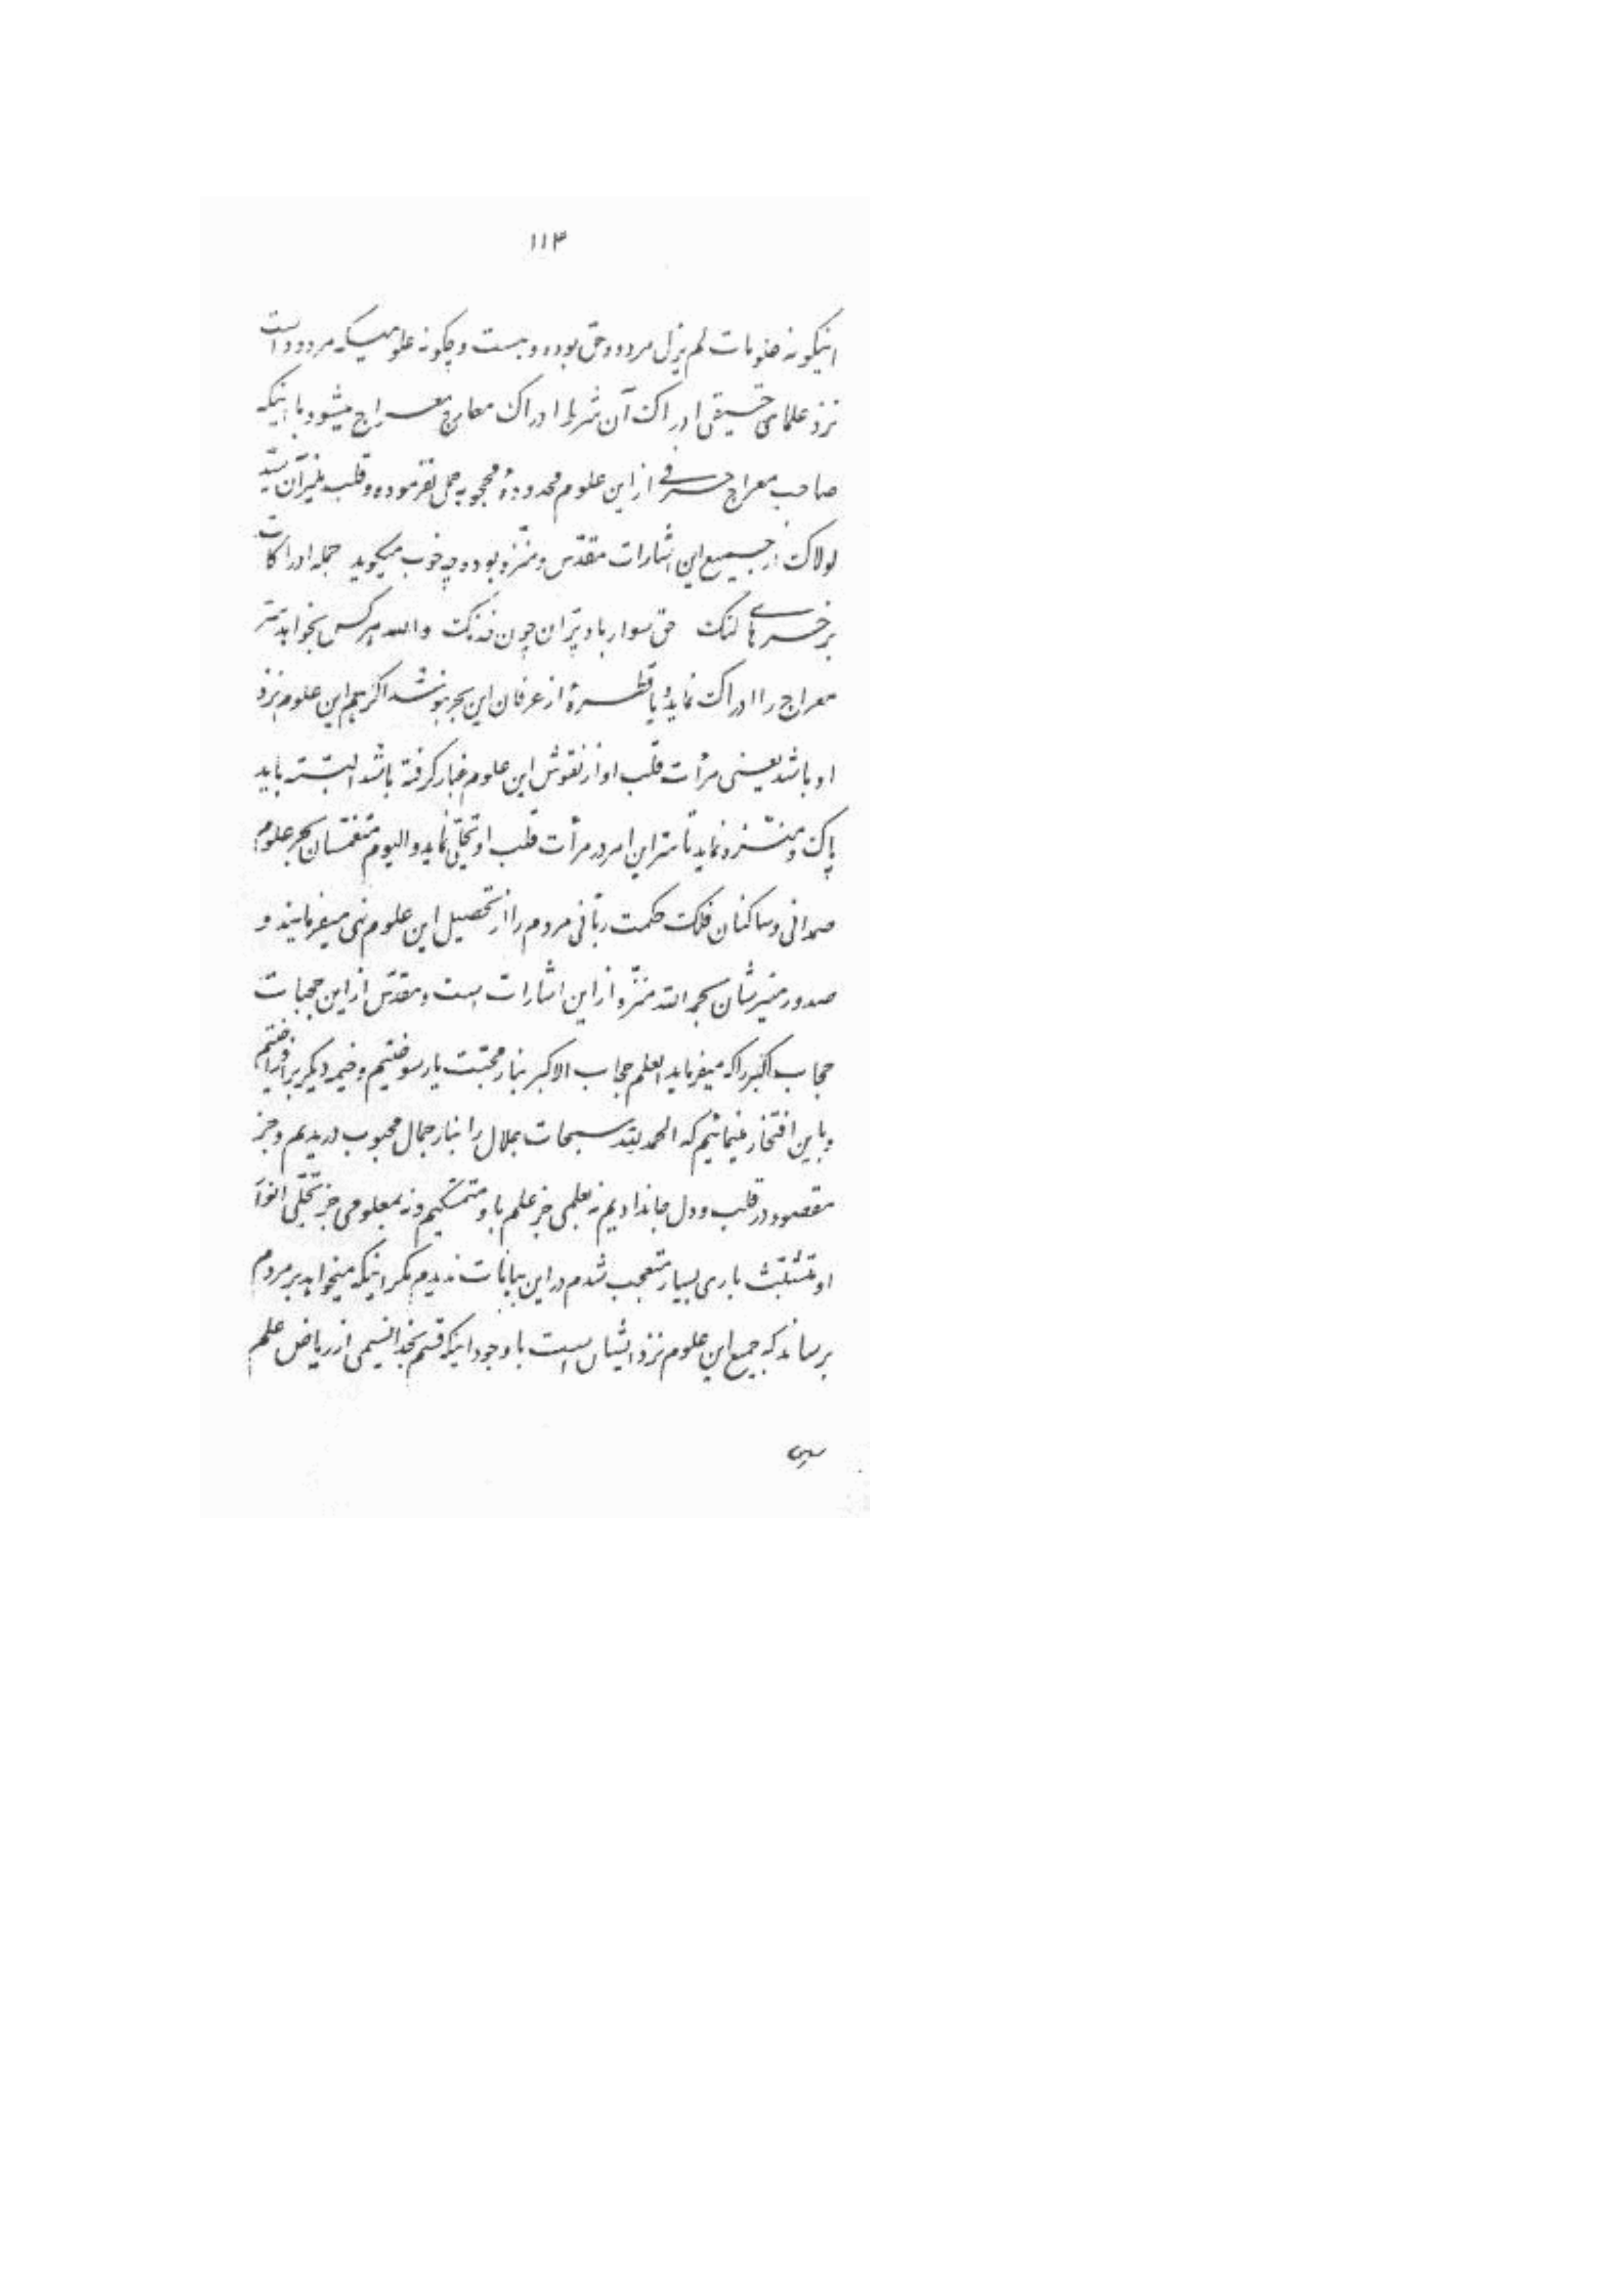 ۱۱۳
اینگونه ظنونات لم یزل مردود حقّ بوده و هست و چگونه علومیکه مردود است
نزد علمای حقیقی ادراک آن شرط ادراک معارج معراج میشود با اینکه
صاحب معراج حرفی از این علوم محدودهٔ محجوبه حمل نفرموده و قلب منیر آن سیّد
لولاک از جمیع این اشارات مقدّس و منزّه بوده چه خوب میگوید جمله ادراکات
بر خرهای لنگ حق سوار باد پرّان چون خدنگ والله هر کس بخواهد سرّ
معراج را ادراک نماید و یا قطرهٔ از عرفان این بحر بنوشد اگر هم این علوم نزد
او باشد یعنی مرآت قلب او از نقوش این علوم غبار گرفته باشد البتّه باید
پاک و منزّه نماید تا سرّ این امر در مرآت قلب او تجلّی نماید و الیوم متغمّسان بحر علوم
صمدانی و ساکنان فلک حکمت ربّانی مردم را از تحصیل این علوم نهی میفرمایند و
صدور منیرشان بحمد الله منزّه از این اشارات است و مقدّس از این حجبات
حجاب اکبر را که میفرماید العلم حجاب الاکبر بنار محبّت یار سوختیم و خیمه دیگر برافراختیم
و باین افتخار مینمائیم که الحمد لله سبحات جلال را بنار جمال محبوب دریدیم و جز
مقصود در قلب و دل جا ندادیم نه بعلمی جز علم باو متمسّکیم و نه بمعلومی جز تجلّی انوار
او متشبّث باری بسیار متعجب شدم در این بیانات ندیدم مگر اینکه میخواهد بر مردم
برساند که جمیع این علوم نزد ایشان است با وجود اینکه قسم بخدا نسیمی از ریاض علم